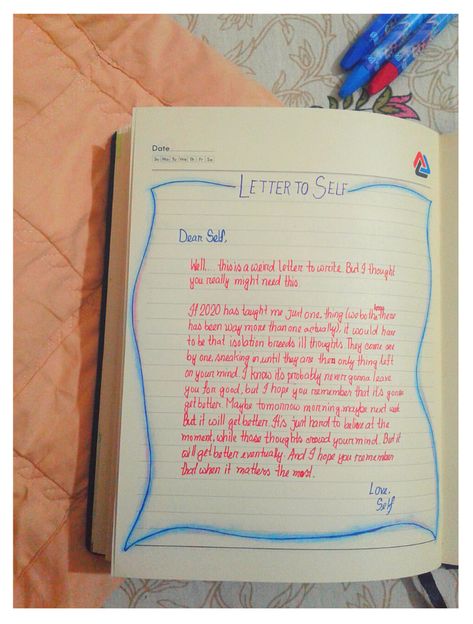 Date
Su Mo Tu We Th Fr Sa
LETTER TO SELF
Dear Self,
Well... this is a weird letter to write. But I thought
you really might need this.
If 2020 has taught me just one thing (we both there
has been way more than one actually), it would have
to be that isolation breeds ill thoughts. They come one
by one, sneaking in, until they are the only thing left
on your mind. I know its probably never gonna leave
you for good, but I hope you remember that it's gonna
get better. Maybe tomorrow morning, maybe next week
But it will get better. It's just hard to believe at the
moment, while those thoughts crowd your mind. But it
will get better eventually. And I hope you remember
that when it matters the most.
Love,
Self